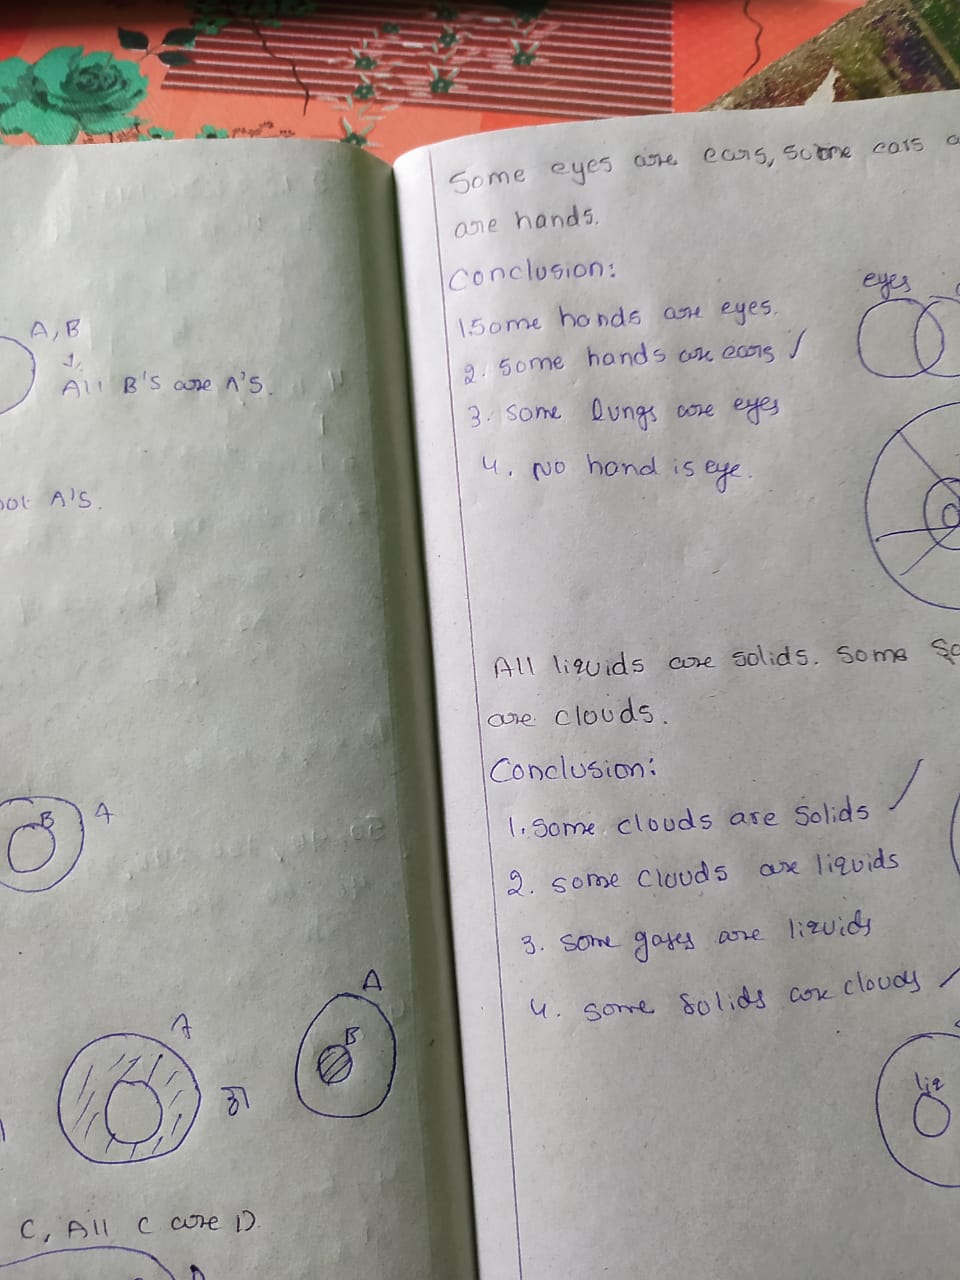 A, B
All B's are A's.
A's.
B
A
A
A
B
C, All C are D.
Some eyes are ears, some ears
are hands.
Conclusion:
eyes
1. Some hands are eyes.
2. Some hands are ears ✓
3. Some lungs are eyes
4. No hand is eye.
All liquids are solids. Some
are clouds.
Conclusion:
1. Some clouds are solids ✓
2. some clouds are liquids
3. some gases are liquids
4. some solids are clouds ✓
liq